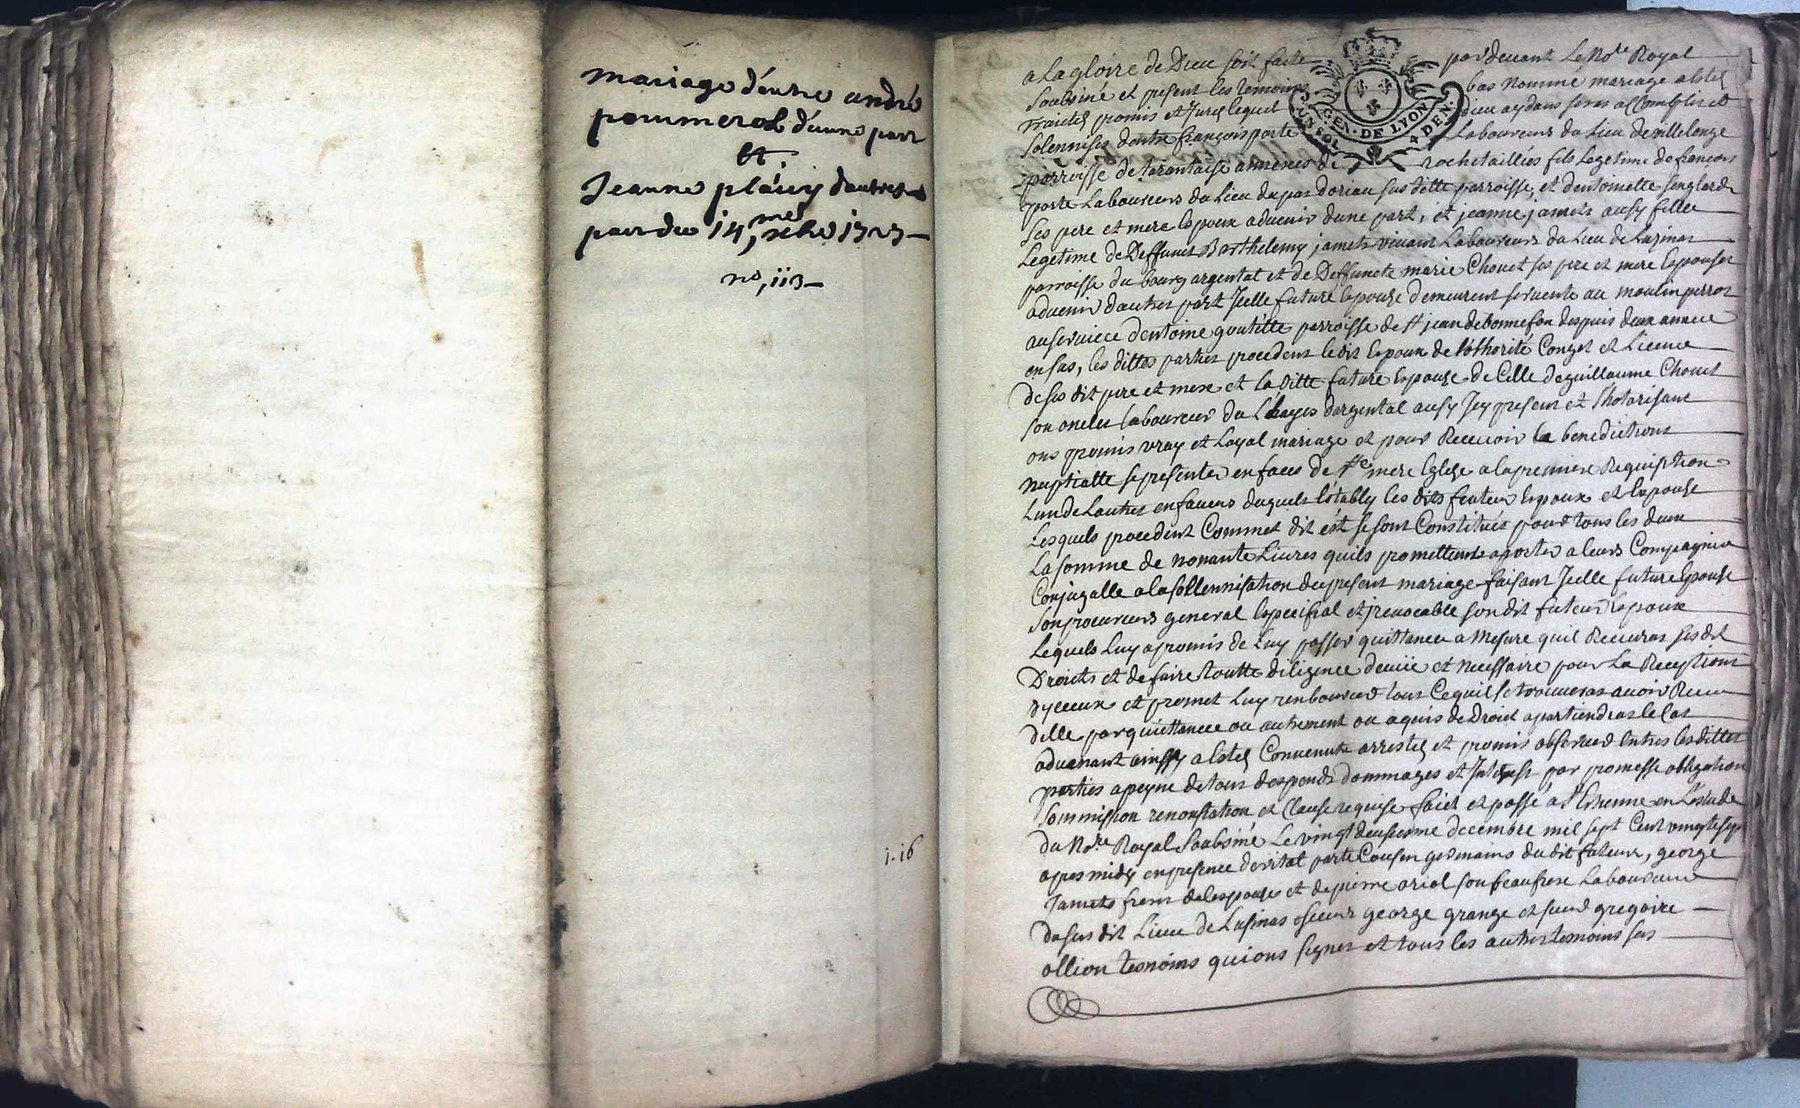 mariage d'entre andré
poummerol d'une part
et
Jeanne pleiny d'autre
part du 14,me xbre 1727
no, 113
1-16
GEN. DE LYON
UN SOL 4 DEN.
a La gloire de Dieu soit faite par devant Le Nore Royal
soubsiné et present les temoins bas nommé mariage a esté
traicté promis et Juré lequel Dieu aydant sera accomply et
solennisés d'entre françois porte Laboureur du Lieu de villelonge
parroisse de tarantaise annexes de rochetaillies fils Legetime de francois
porte Laboureur du Lieu du pas doriau sus ditte parroisse, et d'entoinette
ses pere et mere Espoux aduenir dune part, et jeanne jamets ausy fille
Legetime de Deffunct Barthelemy jamets viuant Laboureur du Lieu de Luzinas
parroisse du bourg argental et de Deffuncte marie Chouet ses pere et mere Espouse
aduenir d'autre part Jcelle future Espouse demeurent seruente au moulin perrot
au seruice d'entoine goutette parroisse de St jean de bonnefon despuis deux annee
en sas, les dittes parties procedent le dit Espoux de l'othorité Conget et Licence
de ses dit pere et mere et la ditte future Espouse de Celle de guillaume Chouet
son oncle Laboureur du dargental ausy Jcy present et L'hotorisant
ons promis vray et Loyal mariage et pour Receuoir la benedictions
nuptialle se presenter en faces de Ste mere Eglize a la premiere Requiption
Lun de Lautre en faueur duquels l'étably les dits futur Espoux et Espouse
Lesquels procedent Comme dit ést se sont Constitués pour tous les deux
La somme de nonante Liures quils promettent aporter a leurs Compagnie
Conjugalle a la sollennisation du present mariage faisant Jcelle future Espouse
son procureur general Especiial et jreuocable son dit futeur Espoux
Lequels Luy a promis de Luy passer quittance a Mesure quil Receuras ses dit
Droicts et de faire toutte diligence deuüe et necessaire pour La Reception
dyceux et promet Luy renbourcer tous Cequil se trouueras auoir Receu
delle par quittance ou autrement ou a quis de Droict apartiendras le Cas
aduenant ainssy a esté Conuenute arresté et promis obseruer Entres les dittes
parties a peyne de tous despends dommages et Interest par promesse obligation
sommission renonstation et Clause requise faict et passé a St Etienne en Lestude
du Nore Royal soubsiné Le vingt deusieme decembre mil sept Cent vingt sep
apres midy en presence de vital porte Cousin germains du dit futeur, george
Jamets frere de l'espouse et de pierre oriol son beaufrere Laboureur
du sus dit Lieu de Lusinas sieur george grange et sieur gregoire
ollion tesmoins quions signer et tous les autres tesmoins sus